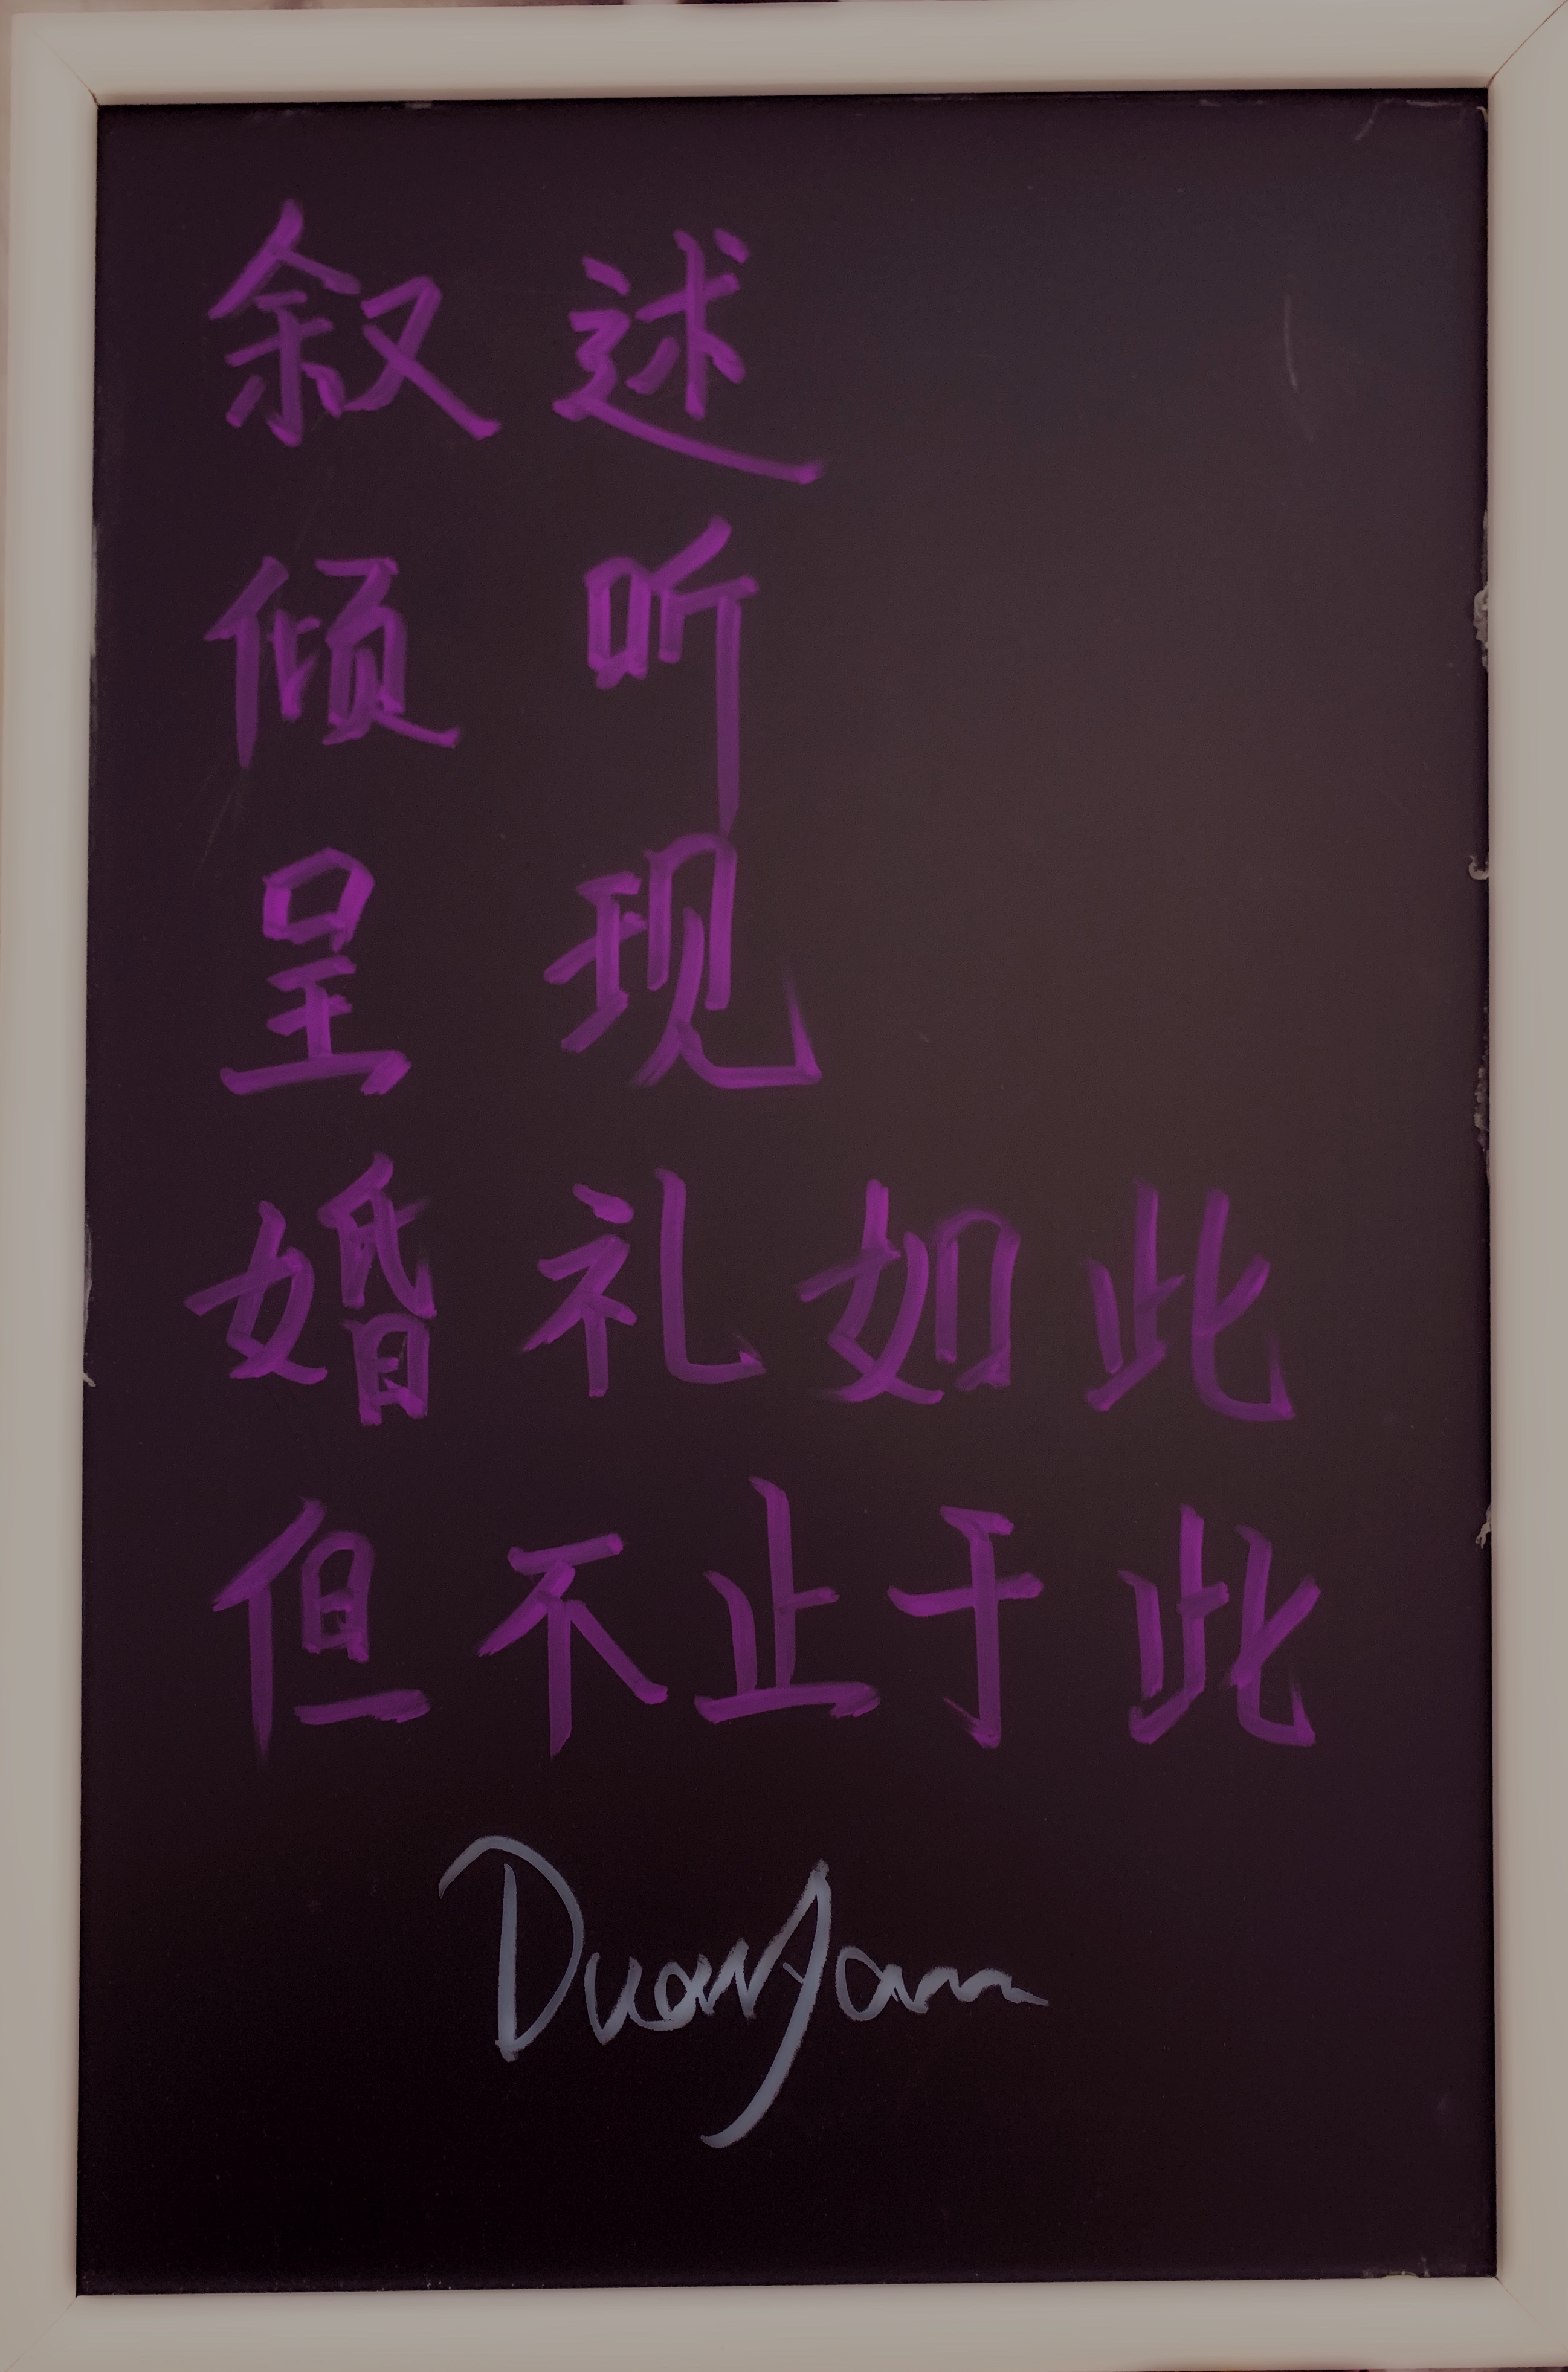 叙述
倾听
呈现
婚礼如此
但不止于此
DuanYam